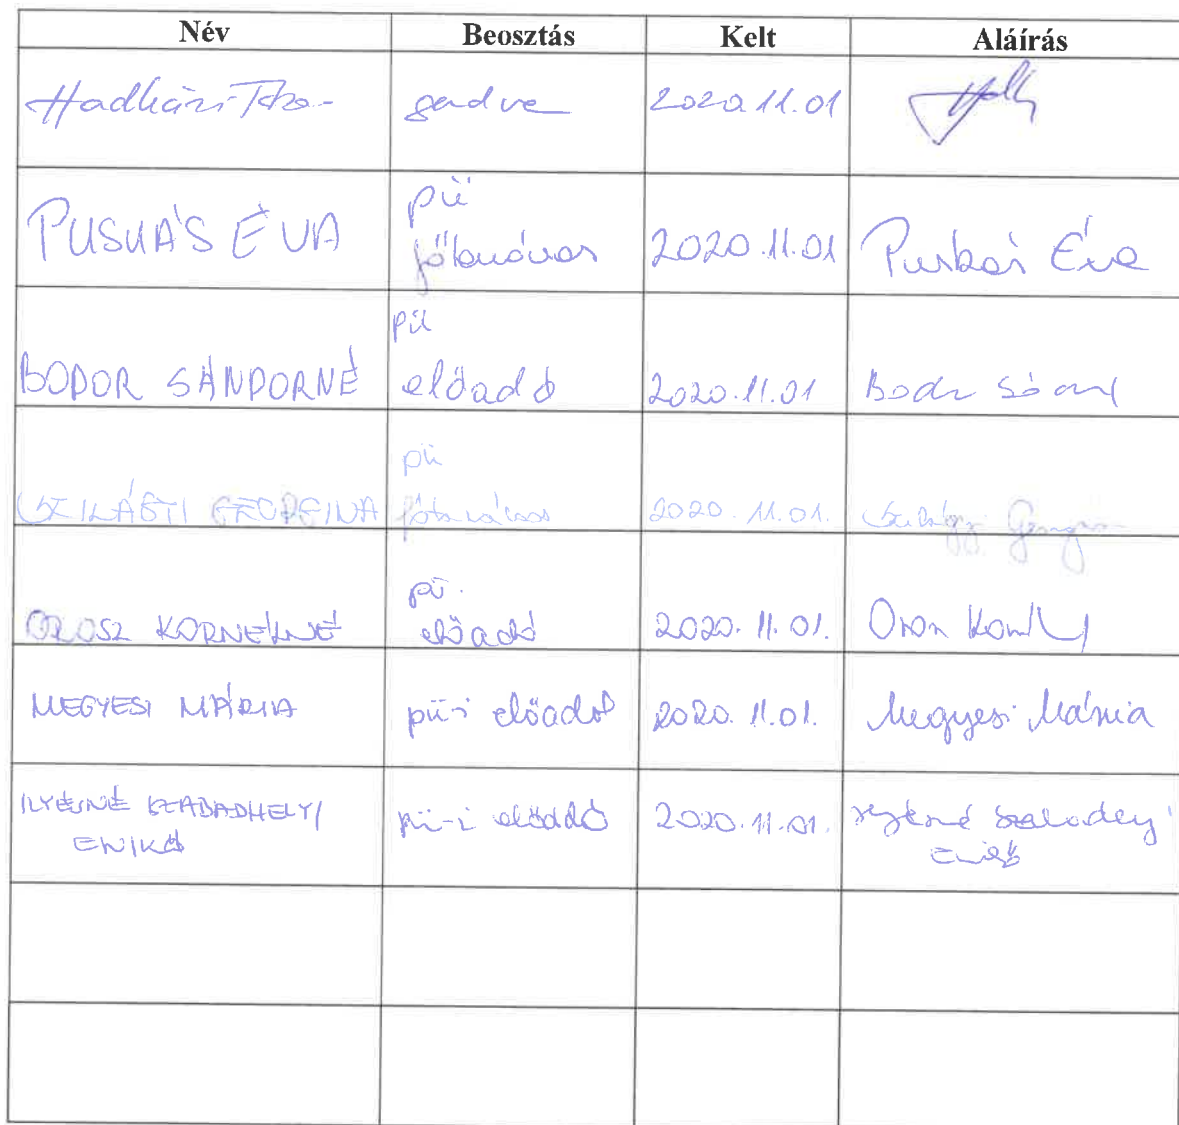 Név Beosztás Kelt Aláírás
Hadházi 2020.11.01
PUSKÁS ÉVA pü főtanácsos 2020.11.01 Puskás Éva
BODOR SÁNDORNÉ pü előadó 2020.11.01
SZILÁGYI GEORGINA pü főtanácsos 2020.11.01. Szilágyi Georgina
OROSZ KORNÉLNÉ pü. előadó 2020.11.01.
MEGYESI MÁRIA pü-i előadó 2020.11.01. Megyesi Mária
ILYÉSNÉ SZABADHELYI ENIKŐ pü-i előadó 2020.11.01.